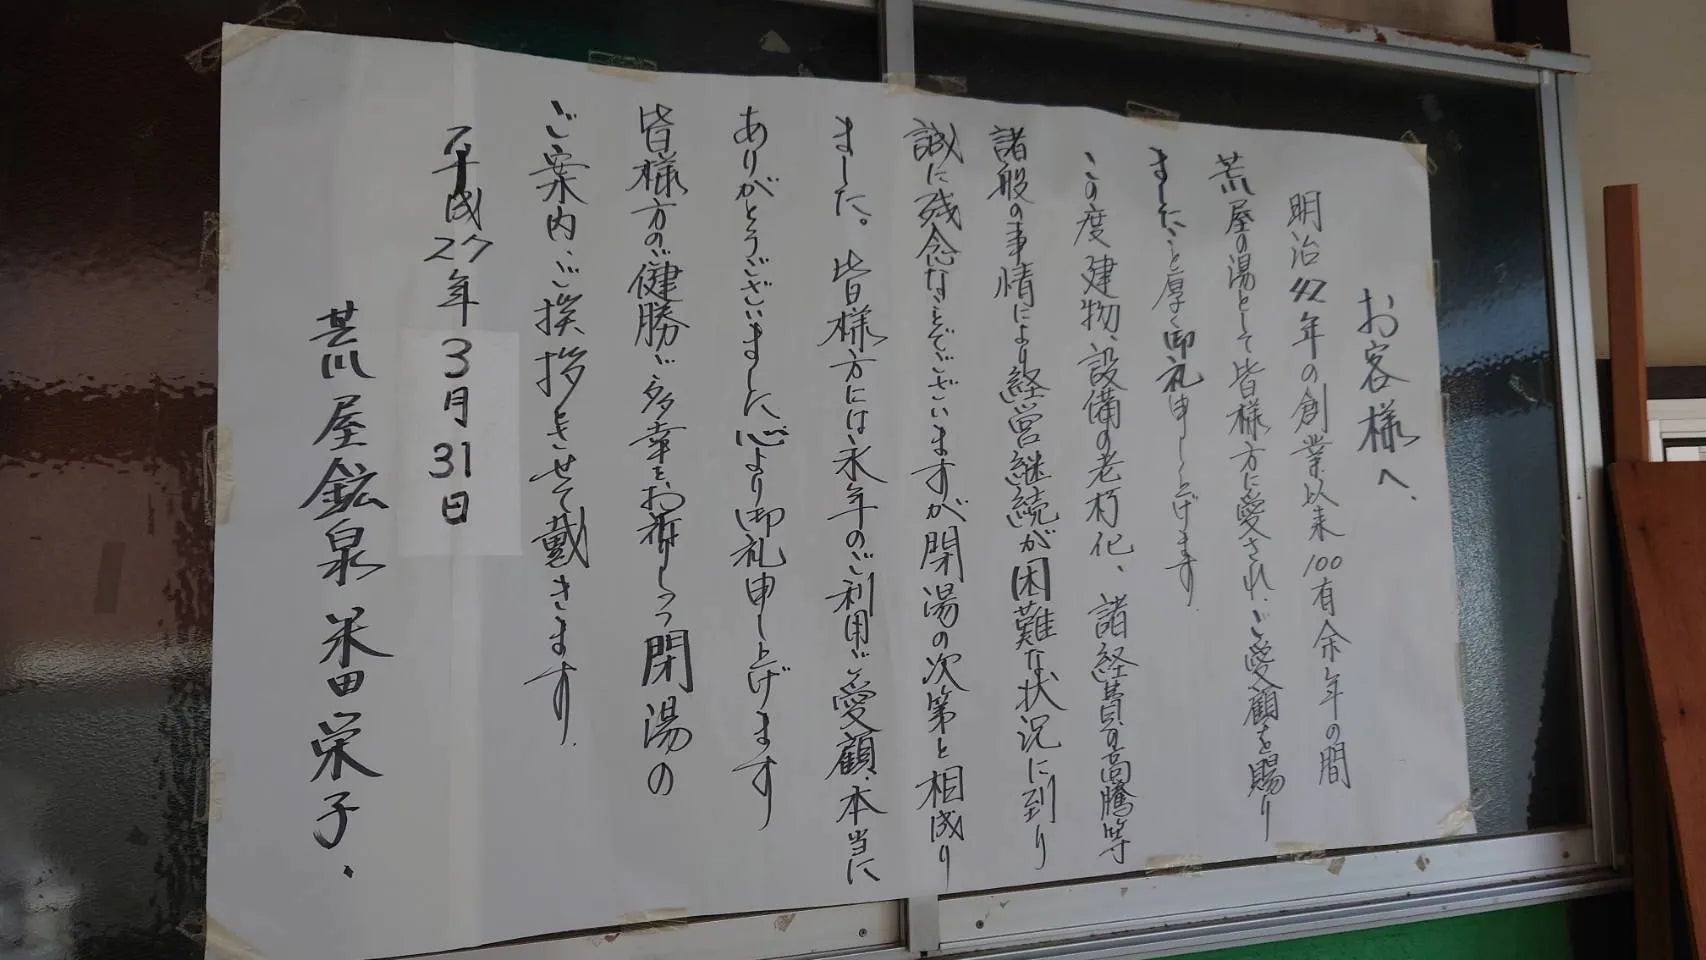 お客様へ、
明治42年の創業以来100有余年の間
荒屋の湯として皆様方に愛され、ご愛顧を賜り
ましたこと厚く御礼申し上げます。
この度建物、設備の老朽化、諸経費の高騰等
諸般の事情により経営継続が困難な状況に到り
誠に残念なことでございますが閉湯の次第と相成り
ました。皆様方には永年のご利用ご愛顧、本当に
ありがとうございました心より御礼申し上げます
皆様方のご健勝ご多幸をお祈りしつつ閉湯の
ご案内、ご挨拶とさせて戴きます。
平成27年3月31日
荒屋鉱泉 米田栄子、